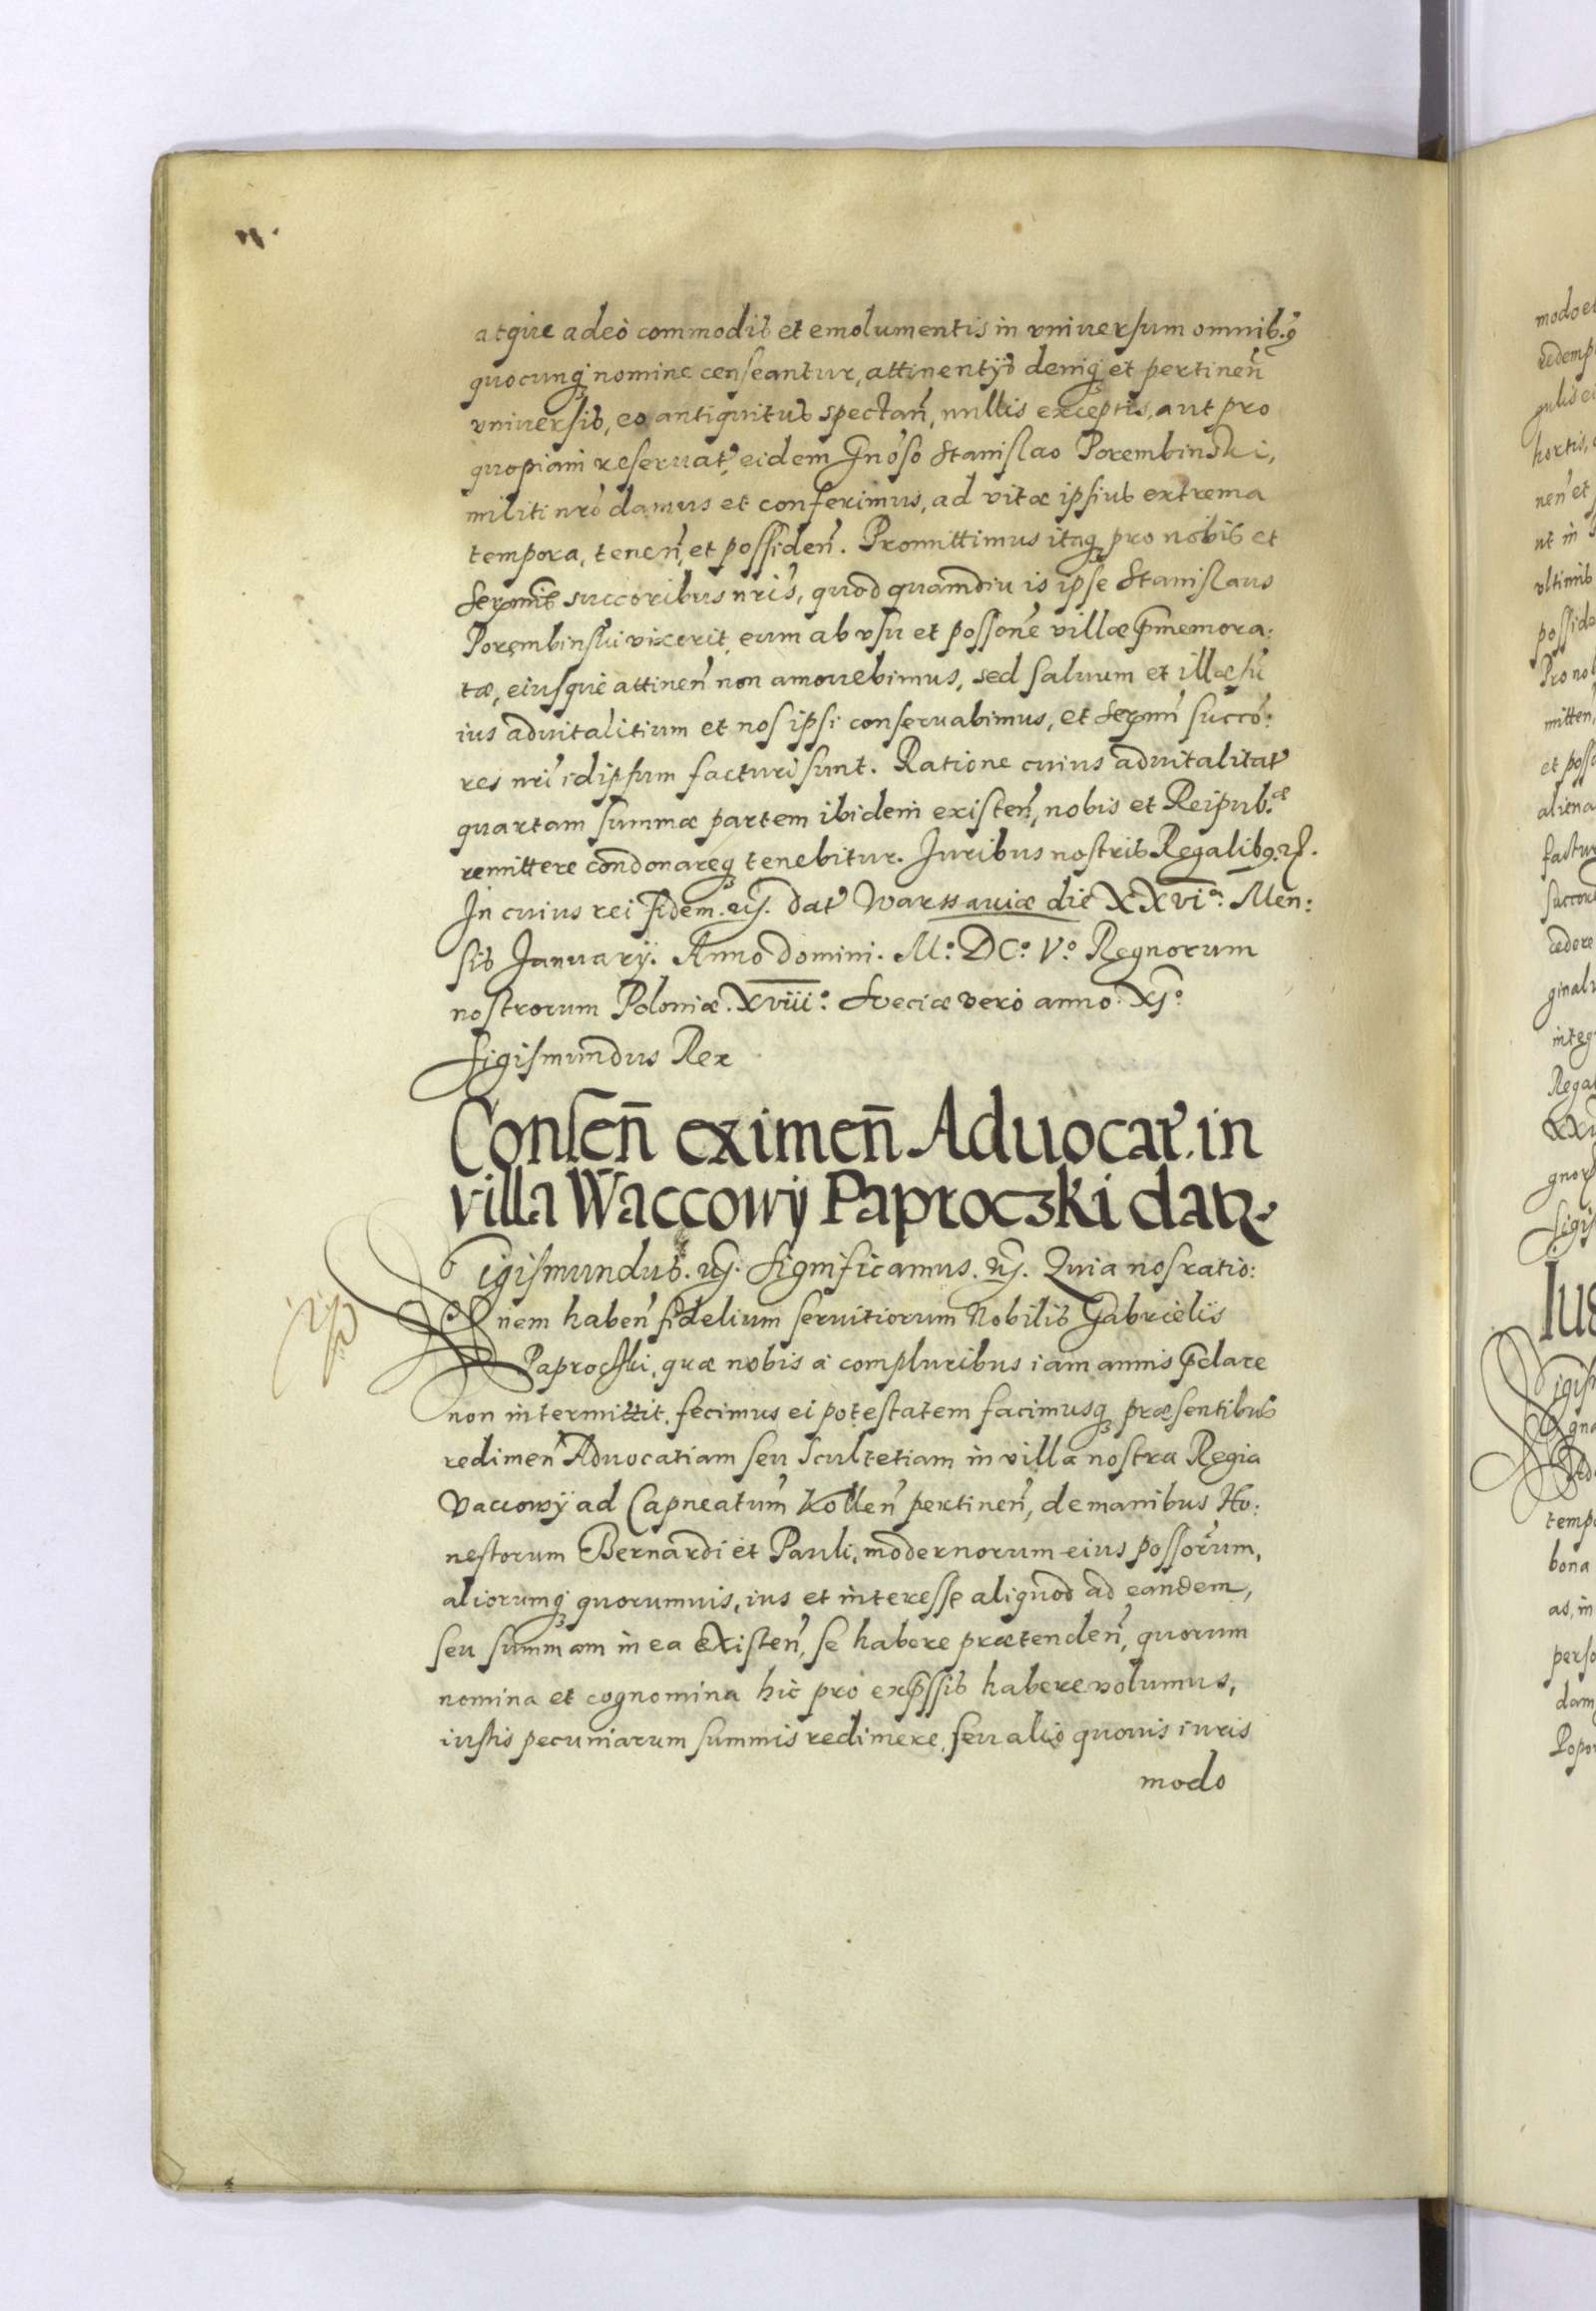 atque adeò commodis et emolumentis in vniuersum omnib.9
quocunq nomine censeantur, attinentÿs deniq et pertineñ
vniuersis, eo antiquitus spectañ, nullis exceptis, aut pro
quopiam reseruat eidem Gnoso Stanislao Porembinski,
militi nrò damus et conferimus, ad vitæ ipsius extrema
tempora, teneñ, et possideñ. Promittimus itaq pro nobis et
Serenmis succoribus nris, quod quamdiu is ipse Stanislaus
Porembinski vixerit, eum ab vsu et possone villæ pmemora:
tæ, eiusque attineñ non amouebimus, sed saluum et illæsu
ius aduitalitium et nos ipsi conseruabimus, et Serenmi succo:
res nri idipsum facturi sunt. Ratione cuius aduitalitat
quartam summæ partem ibidem existeñ, nobis et Reipub.æ
remittere condonareq tenebitur. Juribus nostris Regalib9.
In cuius rei fidem. dat Warssauiæ die XXVIa. Men:
sis Januarÿ. Anno domini. Mo. DCo. Vo. Regnorum
nostrorum Poloniæ. XVIIIo. Sveciæ verò anno XIo
Sigismundus Rex
Conseñ eximeñ Aduocat. in
villa Waccowÿ Paproczki dat.
Sigismundus. Significamus. Quia nos ratio:
nem habeñ fidelium seruitiorum Nobilis Gabrielis
Paprocski, quæ nobis à compluribus iam annis pclare
non intermittit, fecimus ei potestatem facimusq præsentibus
redimeñ Aduocatiam seu Scultetiam in villa nostra Regia
Vaccowÿ ad Capneatum Kolleñ pertineñ, de manibus Ho:
nestorum Bernardi et Pauli, modernorum eius possorum,
aliorumq quorumuis, ius et interesse aliquod ad eandem,
seu summam in ea existeñ, se habere prætendeñ, quorum
nomina et cognomina hic pro expssis habere volumus,
iustis pecuniarum summis redimere, seu alio quouis iuris
modo